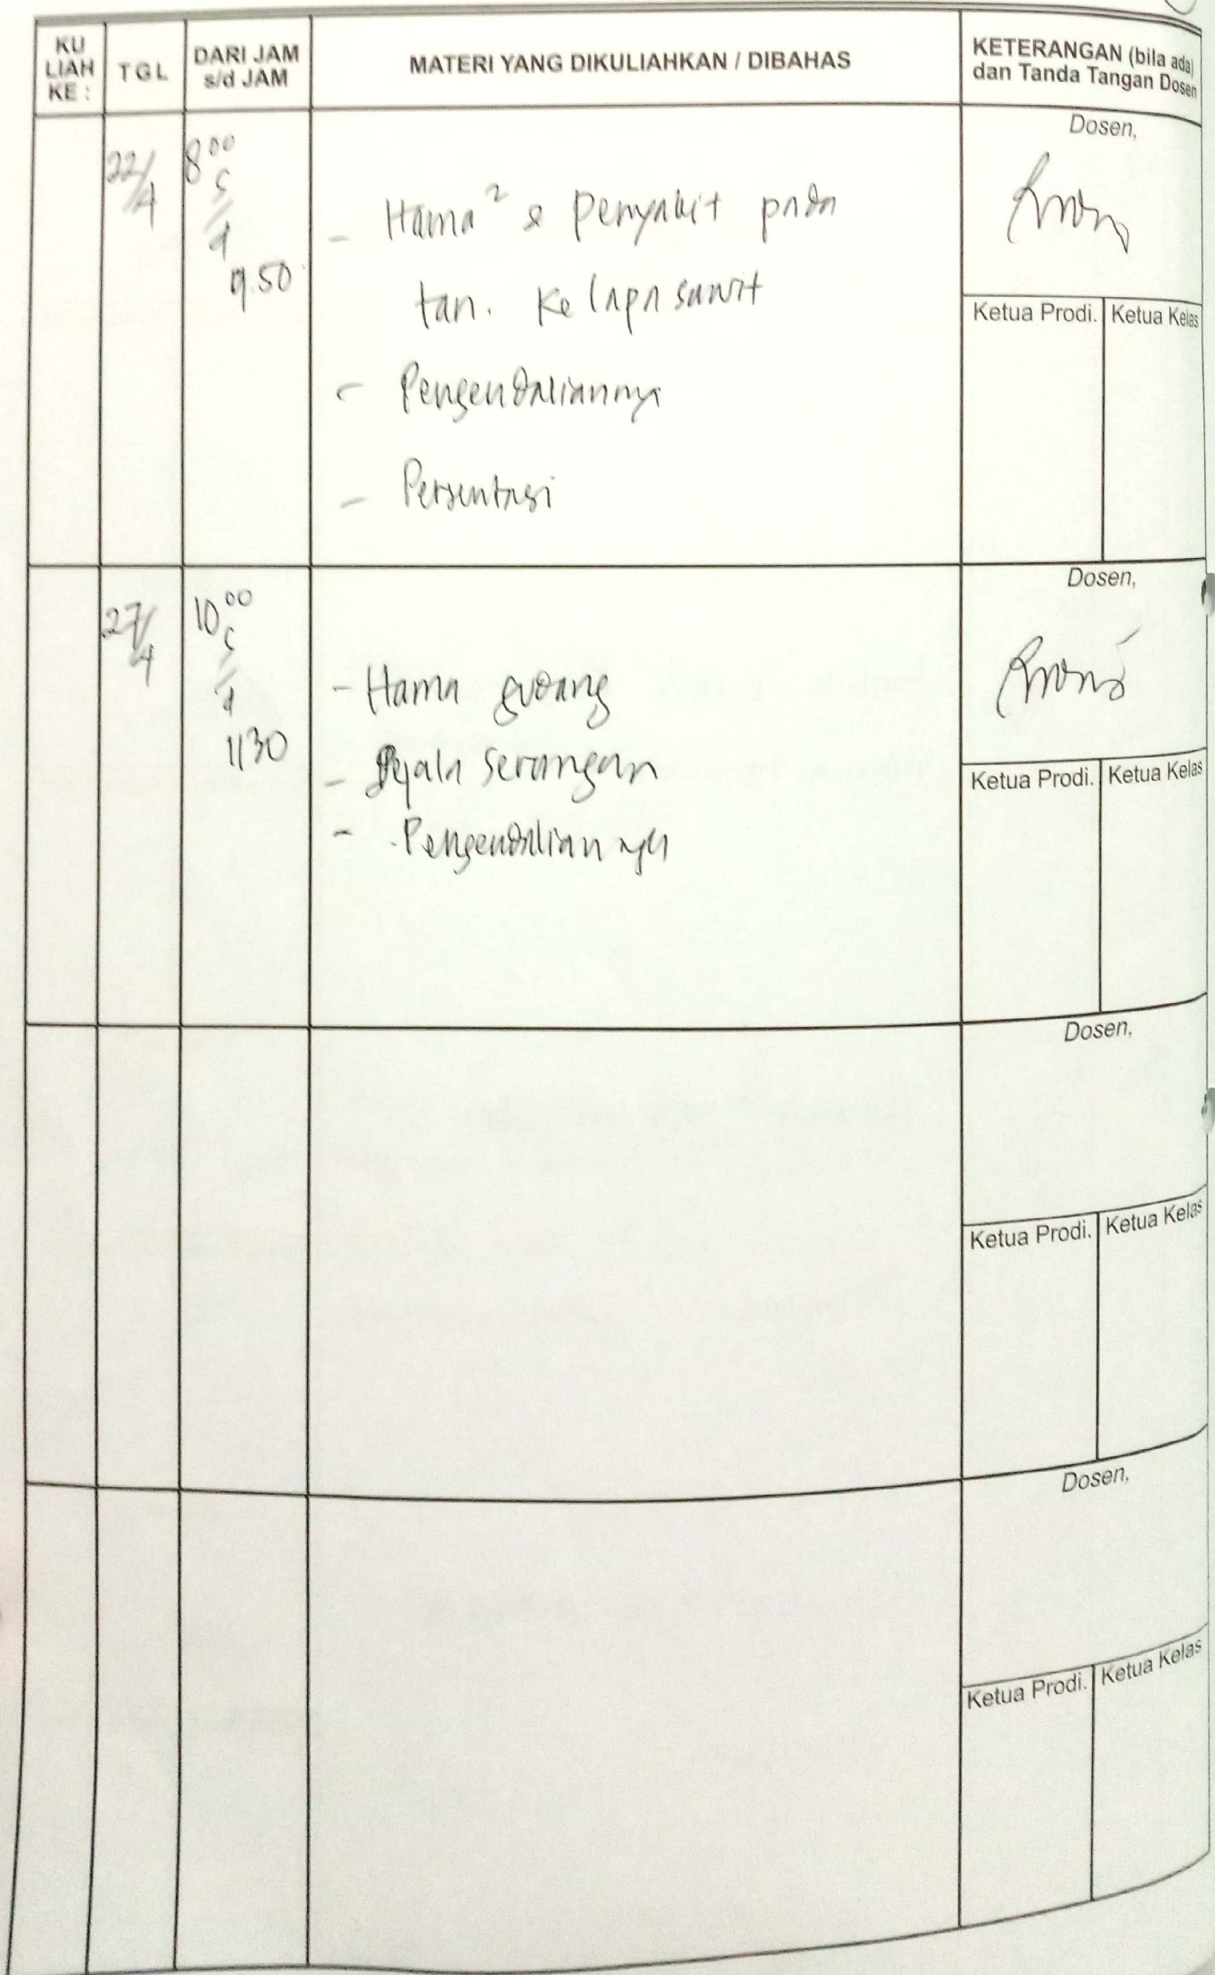 KU LIAH KE : TGL DARI JAM s/d JAM MATERI YANG DIKULIAHKAN / DIBAHAS KETERANGAN (bila ada) dan Tanda Tangan Dosen
Dosen,
22/4 8⁰⁰ s/d 9.50
- Hama² & Penyakit pada
tan. Kelapa sawit
- Pengendaliannya
- Persentasi
Ketua Prodi. Ketua Kelas
Dosen,
27/4 10⁰⁰ s/d 1130
- Hama gudang
- Gejala Serangan
- Pengendaliannya
Ketua Prodi. Ketua Kelas
Dosen,
Ketua Prodi. Ketua Kelas
Dosen,
Ketua Prodi. Ketua Kelas